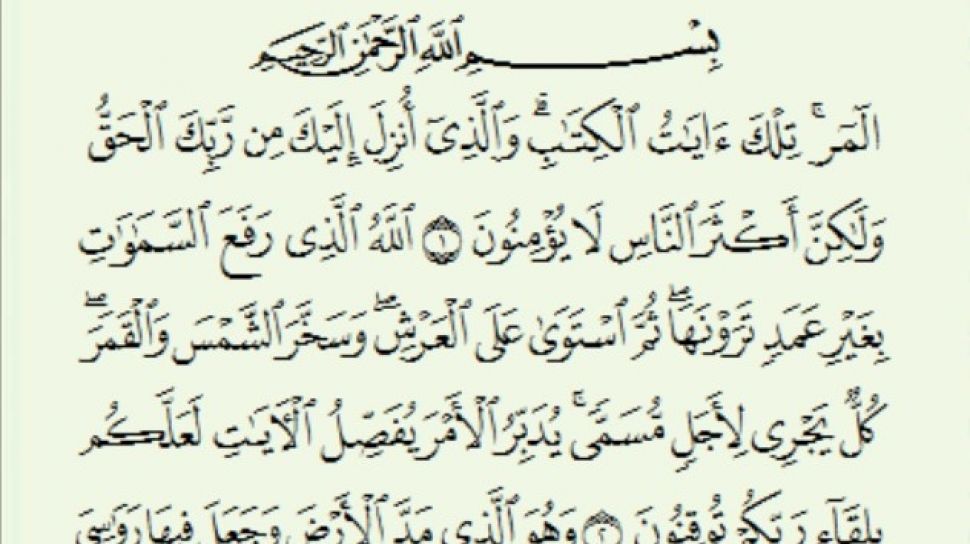 بِسْمِ ٱللَّهِ ٱلرَّحْمَٰنِ ٱلرَّحِيمِ
الٓمٓر ۚ تِلْكَ ءَايَٰتُ ٱلْكِتَٰبِ ۗ وَٱلَّذِىٓ أُنزِلَ إِلَيْكَ مِن رَّبِّكَ ٱلْحَقُّ
وَلَٰكِنَّ أَكْثَرَ ٱلنَّاسِ لَا يُؤْمِنُونَ ١ ٱللَّهُ ٱلَّذِى رَفَعَ ٱلسَّمَٰوَٰتِ
بِغَيْرِ عَمَدٍ تَرَوْنَهَا ۖ ثُمَّ ٱسْتَوَىٰ عَلَى ٱلْعَرْشِ ۖ وَسَخَّرَ ٱلشَّمْسَ وَٱلْقَمَرَ ۖ
كُلٌّ يَجْرِى لِأَجَلٍ مُّسَمًّى ۚ يُدَبِّرُ ٱلْأَمْرَ يُفَصِّلُ ٱلْءَايَٰتِ لَعَلَّكُم
بِلِقَآءِ رَبِّكُمْ تُوقِنُونَ ٢ وَهُوَ ٱلَّذِى مَدَّ ٱلْأَرْضَ وَجَعَلَ فِيهَا رَوَٰسِىَ